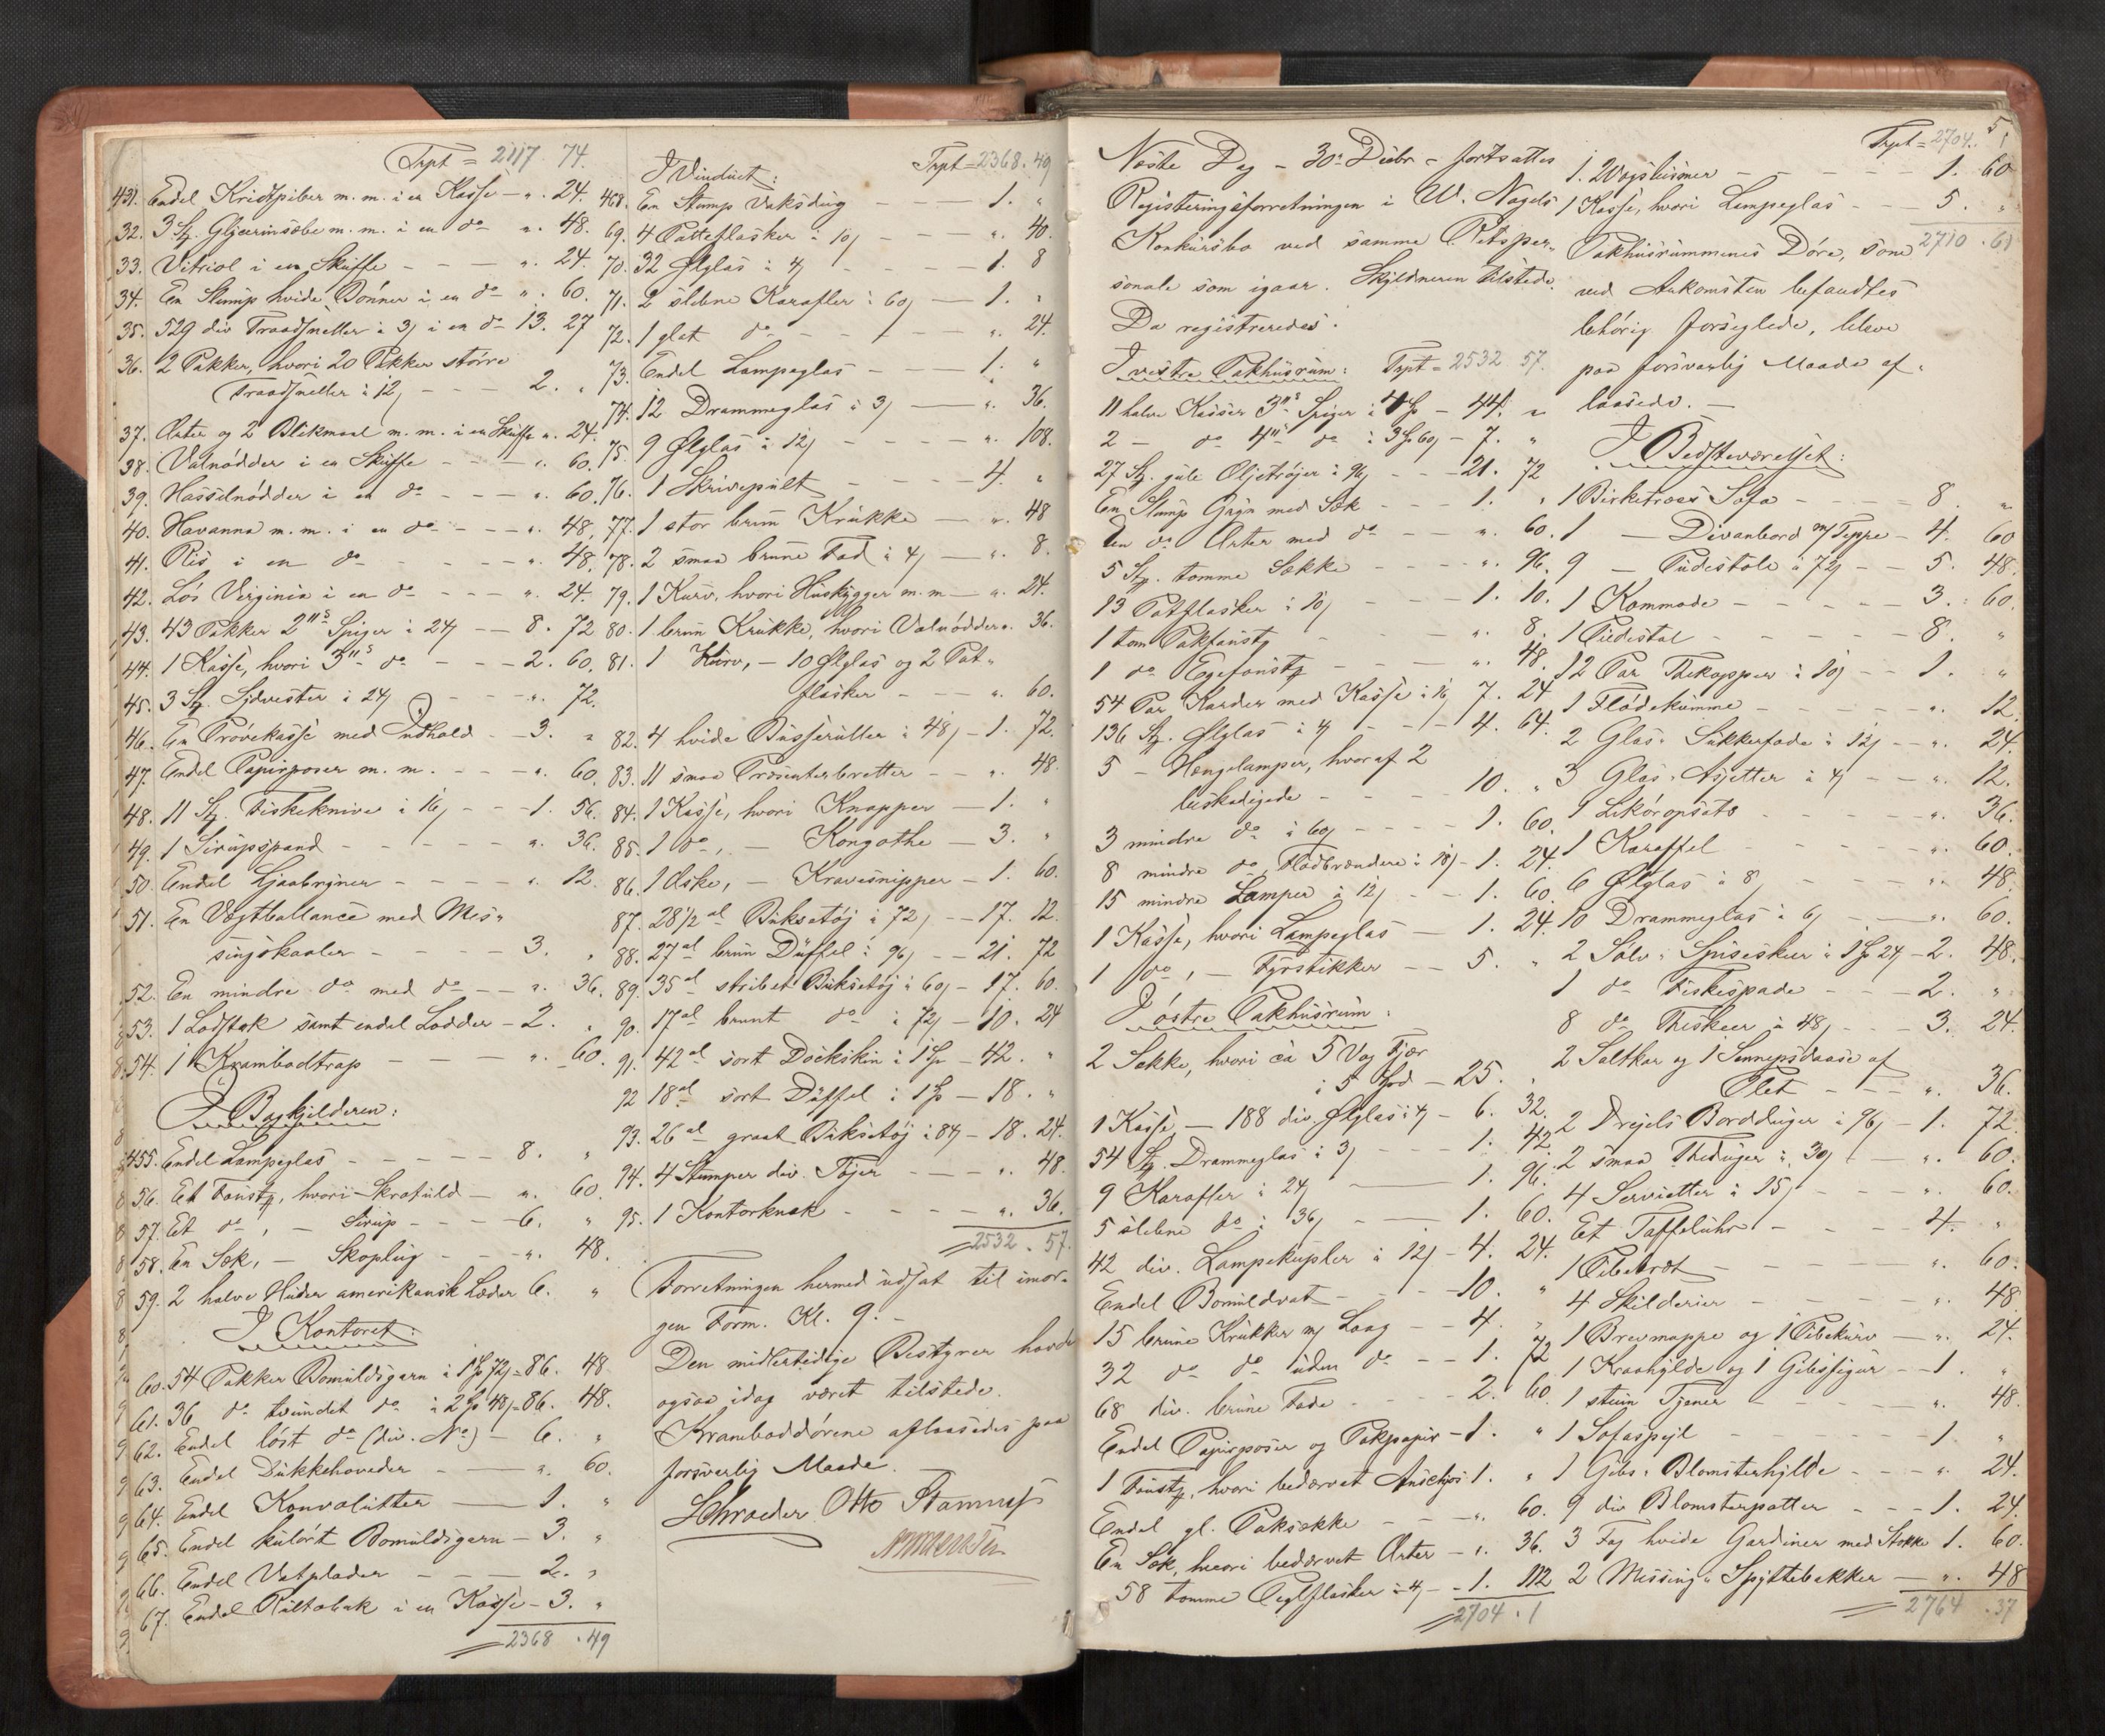 Trpt = 2117 74.
431. Endel Kridtpiber m. m. i en Kasse - ". 24.
32. 3 St. Glycerinsæbe m. m. i en do ". 48.
33. Vitriol i en Skuffe - - - ". 24.
34. En Slump hvide Bønner i en do ". 60.
35. 529 div Traadsneller à 3 i en do 13. 27
36. 2 Pakker, hvori 20 Pakker større
Traadsneller à 12 - - - 2. "
37. Erter og 2 Blikmaal m. m. i en Skuffe ". 24.
38. Valnødder i en Skuffe - - - ". 60.
39. Hasselnødder i en do - - - ". 60.
40. Havanna m. m. i en do - - - ". 48.
41. Ris i en do - - - ". 48.
42. Løs Virginia i en do - - - ". 24.
43. 43 Pakker 2"s Spiger à 24 - - 8. 72
44. 1 Kasse, hvori 3"s do - - - 2. 60.
45. 3 St. Sydvester à 24 - - - ". 72.
46. En Prøvekasse med Indhold - - 3. "
47. Endel Papirposer m. m. - - - ". 60.
48. 11 St. Fiskeknive à 16 - - - 1. 56.
49. 1 Sirupsspand - - - ". 36.
50. Endel Ljaabryner - - - ". 12.
51. En Vægtballance med Mes=
singskaaler - - - 3. "
52. En mindre do med do - - ". 36.
53. 1 Lodstok samt endel Lodder - 2. "
54. 1 Krambodtrap - - - ". 60.
I Bagkjelderen:
455. Endel Lampeglas - - - 8. "
56. Et Foustg, hvori Skrafuld - ". 60.
57. Et do, - Sirup - - - 6. "
58. En Sæk, - Skoplug - - - ". 48.
59. 2 halve Huder amerikansk Læder 6. "
I Kontoret:
60. 54 Pakker Bomuldsgarn à 1 72 = 86. 48
61. 36 do tvundet do à 2 48 = 86. 48.
62. Endel løst do (div. No) - 6. "
63. Endel Dukkehoveder - - ". 60.
64. Endel Konvolutter - - 1. "
65. Endel kulørt Bomuldsgarn - 3. "
66. Endel Vatplader - - - 2. "
67. Endel Rultobak i en Kasse - 3. "
2368 . 49
I Vinduet: Trpt = 2368. 49
468. En Slump Voksdug - - - 1. "
69. 4 Patteflasker à 10 - - - ". 40.
70. 32 Ølglas à 4 - - - 1. 8
71. 2 slebne Karafler à 60 - 1. "
72. 1 glat do - - - ". 24.
73. Endel Lampeglas - - - 1. "
74. 12 Drammeglas à 3 - ". 36.
75. 9 Ølglas à 12 - - - ". 108.
76. 1 Skrivepult - - - 4. "
77. 1 stor brun Krukke - - ". 48
78. 2 smaa brune Fad à 4 - ". 8.
79. 1 Kurv, hvori Huskygger m. m - ". 24.
80. 1 brun Krukke, hvori Valnødder ". 36.
81. 1 Kurv, - 10 Ølglas og 2 Pat=
flasker - - - ". 60.
82. 4 hvide Busseruller à 48 - 1. 72.
83. 11 smaa Præsenterbretter - - ". 48.
84. 1 Kasse, hvori Knapper - 1. "
85. 1 do, - Kongothe - 3. "
86. 1 Æske, - Kravesnipper - 1. 60.
87. 28 1/2 al Buksetøj à 72 - - 17. 12.
88. 27 al brun Düffel à 96 - - 21. 72
89. 35 al stribet Buksetøj à 60 - 17. 60.
90. 17 al brunt do à 72 - 10. 24
91. 42 al sort Doeskin à 1 - 42. "
92 18 al sort Düffel à 1 - 18. "
93. 26 al graat Buksetøj à 84 - 18. 24.
94. 4 Stumper div. Tøjer - - - ". 48.
95. 1 Kontorkrak - - - ". 36.
2532 . 57.
Forretningen hermed udsat til imor=
gen Form. Kl. 9. -
Den midlertidige Bestyrer havde
ogsaa idag været tilstede.
Kramboddørene aflaasedes paa
forsvarlig Maade.
Schroeder. Otto Stamnes
5
Næste Dag - 30te Decbr - fortsattes
Registreringsforretningen i W. Nagels
Konkursbo ved samme Retsper=
sonale som igaar. Skyldneren tilstede.
Da registreredes:
I vestre Pakhusrum: Trpt = 2532 57.
11 halve Kasser 3"s Spiger à 4 - 44. "
2 - do 4"s do à 3 60 - 7. "
27 St. gule Oljetrøjer à 96 - - 21. 72
En Slump Gryn med Sæk - - - 1. "
En do Erter med do - - ". 60.
5 St. tomme Sække - - - ". 96.
13 Patflasker à 10 - - - 1. 10.
1 tom Pakfoustg - - - ". 8.
1 do Egefoustg - - - ". 48.
54 Par Karder med Kasse à 16 7. 24
136 St. Ølglas à 4 - - - 4. 64.
5 - Hengelamper, hvoraf 2
beskadigede - - - 10. "
3 mindre do à 60 - - - 1. 60.
8 mindre do, Fladbrændere à 18 - 1. 24.
15 mindre Lamper à 12 - - 1. 60.
1 Kasse, hvori Lampeglas - 1. 24.
1 do, - Fyrstikker - - 5. "
I østre Pakhusrum:
2 Sække, hvori ca 5 Vog Fjær
à 5 - 25. "
1 Kasse - 188 div. Ølglas à 4 - 6. 32.
54 St. Drammeglas à 3 - - - 1. 42
9 Karafler à 24 - - 1. 96.
5 slebne do à 36 - - 1. 60.
42 div. Lampekupler à 12 - 4. 24.
Endel Bomuldvat - - - 10. "
15 brune Krukker m/ Laag - - 4. "
32 do do uden do - - 1. 72
68 div. brune Fade - - - 2. 60.
Endel Papirposer og Pakpapir - 1. "
1 Foustg, hvori bedærvet Anschjos 1. "
Endel gl. Paksække - - - ". 60.
En Sæk, hvori bedærvet Erter - ". 36.
58 tomme Seglflasker à 4 - - 1. 112
2704 . 1
Trpt = 2704. 1
1. Vogsbismer - - - 1. 60
1 Kasse, hvori Lampeglas - - 5. "
2710 . 61
Pakhusrummenes Døre, som
ved Ankomsten befandtes
behørig forseglede, bleve
paa forsvarlig Maade af=
laasede. -
I Bedsteværelset:
1 Birketræes Sofa - - - 8. "
1 - Divanbord m/ Teppe - 4. 60
9 - Pudestole à 72 - - 5. 48.
1 Kommode - - - 3. 60.
1 Piedestal - - - 8. "
12 Par Thekopper à 10 - - 1. "
1 Flødekumme - - - ". 12.
2 Glas= Sukkerfade à 12 - - ". 24.
3 Glas= Asjetter à 4 - - ". 12.
1 Likøropsats - - - ". 36.
1 Karaffel - - - ". 60.
6 Ølglas à 8 - - - ". 48.
10 Drammeglas à 6 - - ". 60.
2 Sølv= Spiseskeer à 1 24 - 2. 48.
1 do Fiskespade - - - 2. "
8 do Theskeer à 48 - - - 3. 24.
2 Saltkar og 1 Sennepsdaase af
Plet - - - ". 36.
2 Drejels Borddüger à 96 - 1. 72.
2 smaa Theduger à 30 - - ". 60.
4 Servietter à 15 - - - ". 60.
Et Taffeluhr - - - 4. "
1 Pibebræt - - - ". 60.
4 Skilderier - - - ". 48
1 Brevmappe og 1 Pibekurv - ". 24.
1 Kraahylde og 1 Gibsfigur - - 1. "
1 stum Tjener - - - ". 48.
1 Sofaspejl - - - 1. "
1 Gibs= Blomsterhylde - - - ". 24.
9 div Blomsterpotter - - - 1. 24.
3 Fag hvide Gardiner med Stokke 1. 60.
2 Messing= Spyttebakker - ". 48
2764 . 37